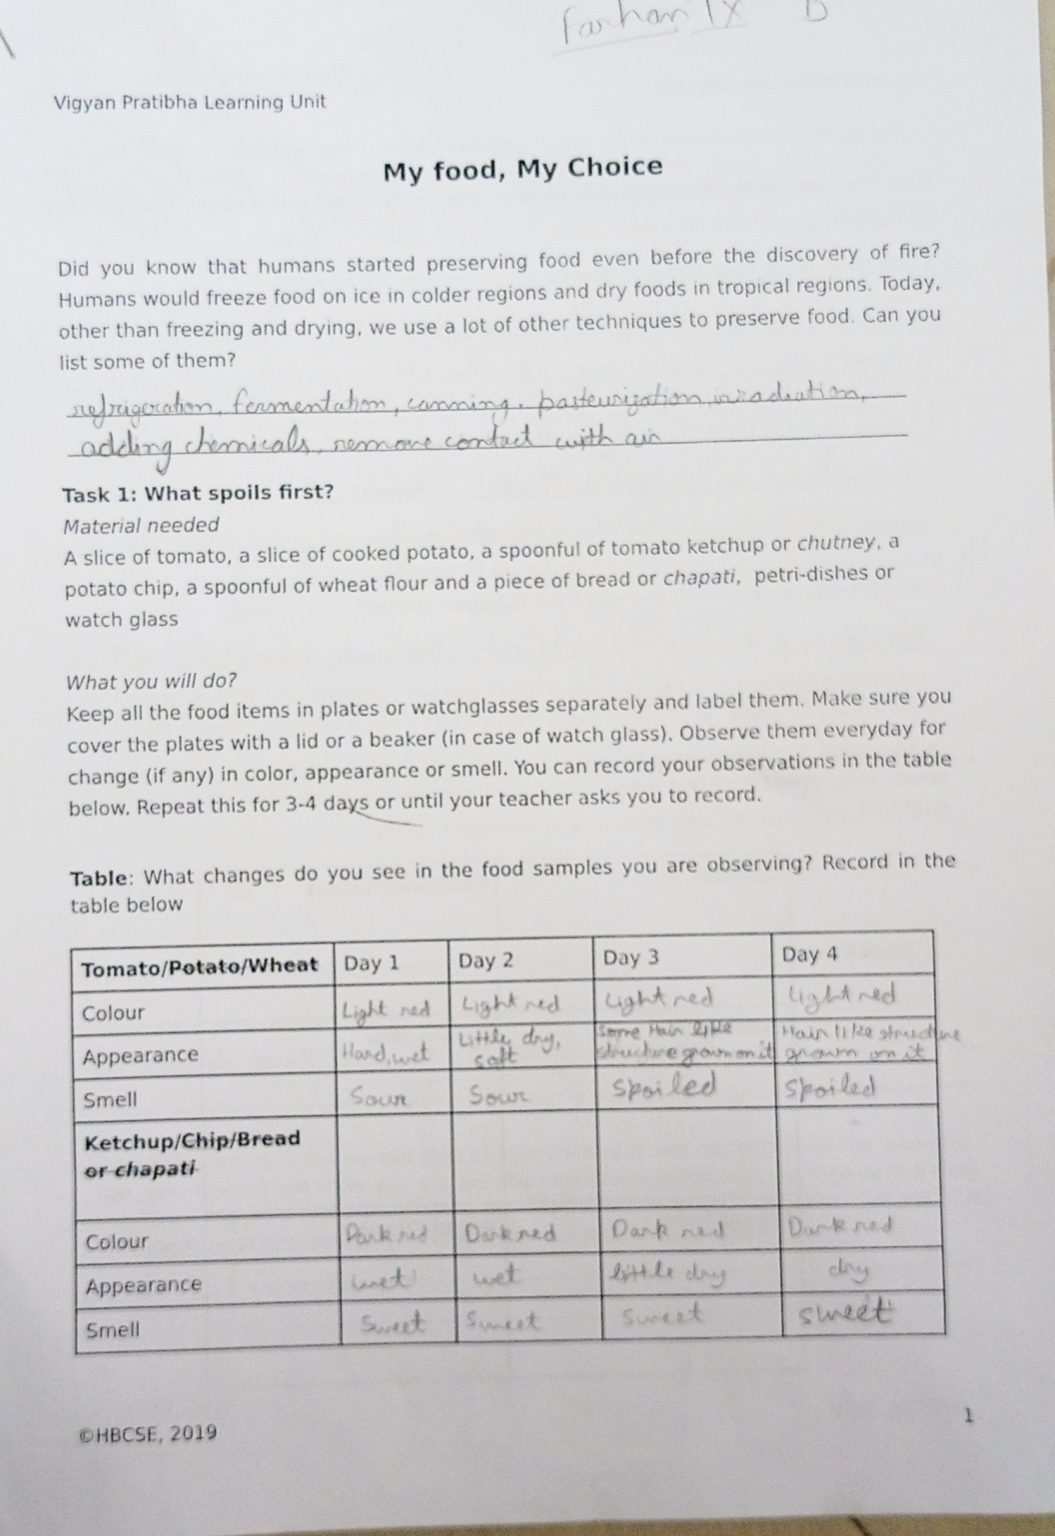 Farhan IX B
Vigyan Pratibha Learning Unit
My food, My Choice
Did you know that humans started preserving food even before the discovery of fire?
Humans would freeze food on ice in colder regions and dry foods in tropical regions. Today,
other than freezing and drying, we use a lot of other techniques to preserve food. Can you
list some of them?
refrigeration, fermentation, canning, pasteurization, irradiation,
adding chemicals, remove contact with air
Task 1: What spoils first?
Material needed
A slice of tomato, a slice of cooked potato, a spoonful of tomato ketchup or chutney, a
potato chip, a spoonful of wheat flour and a piece of bread or chapati, petri-dishes or
watch glass
What you will do?
Keep all the food items in plates or watchglasses separately and label them. Make sure you
cover the plates with a lid or a beaker (in case of watch glass). Observe them everyday for
change (if any) in color, appearance or smell. You can record your observations in the table
below. Repeat this for 3-4 days or until your teacher asks you to record.
Table: What changes do you see in the food samples you are observing? Record in the
table below
Tomato/Potato/Wheat Day 1 Day 2 Day 3 Day 4
Colour Light red Light red Light red Light red
Appearance Hard, wet Little dry, soft Some Hair like structure grown on it Hair like structure grown on it
Smell Sour Sour Spoiled Spoiled
Ketchup/Chip/Bread
or chapati
Colour Dark red Dark red Dark red Dark red
Appearance wet wet little dry dry
Smell Sweet Sweet Sweet sweet
©HBCSE, 2019
1